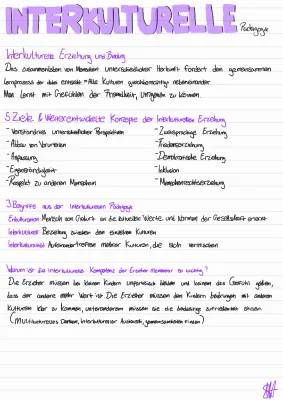 INTERKULTURELLE Pädagogik
Interkulturelle Erziehung und Bildung
Das zusammenleben von Menschen unterschiedlicher Herkunft fordert den gemeinsamen
Lernprozess der dabei entsteht = Alle Kulturen gleichberechtigt nebeneinander.
Man lernt mit Gefühlen der Fremdheit, umgehen zu können.
5 Ziele & Weiterentwickelte Konzepte der Interkulturellen Erziehung
-Verständnis unterschiedlicher Perspektiven -Zweisprachige Erziehung
-Abbau von Vorurteilen -Friedenserziehung
-Anpassung -Demokratische Erziehung
-Eigenständigkeit -Inklusion
-Respekt zu anderen Menschen -Menschenrechtserziehung
3 Begriffe aus der interkulturellen Pädagogik
Enkulturation: Mensch von Geburt an die kulturellen Werte und Normen der Gesellschaft erlernt
Interkulturell: Beziehung zwischen den einzelnen Kulturen
Interkulturalität: Aufeinandertreffen mehrer Kulturen, die sich vermischen
Warum ist die interkulturelle Kompetenz der Erzieher elementar so wichtig?
Die Erzieher müssen bei kleinen Kindern unterstützt bleiben und keinem das Gefühl geben,
dass der andere mehr Wert ist. Die Erzieher müssen den Kindern bedürfnisse mit anderen
Kulturen klar zu kommen, untereinander müssen sie die zufrieden stellen
(Multikulturelles Denken, interkultureller Austausch, gemeinsamkeiten finden)